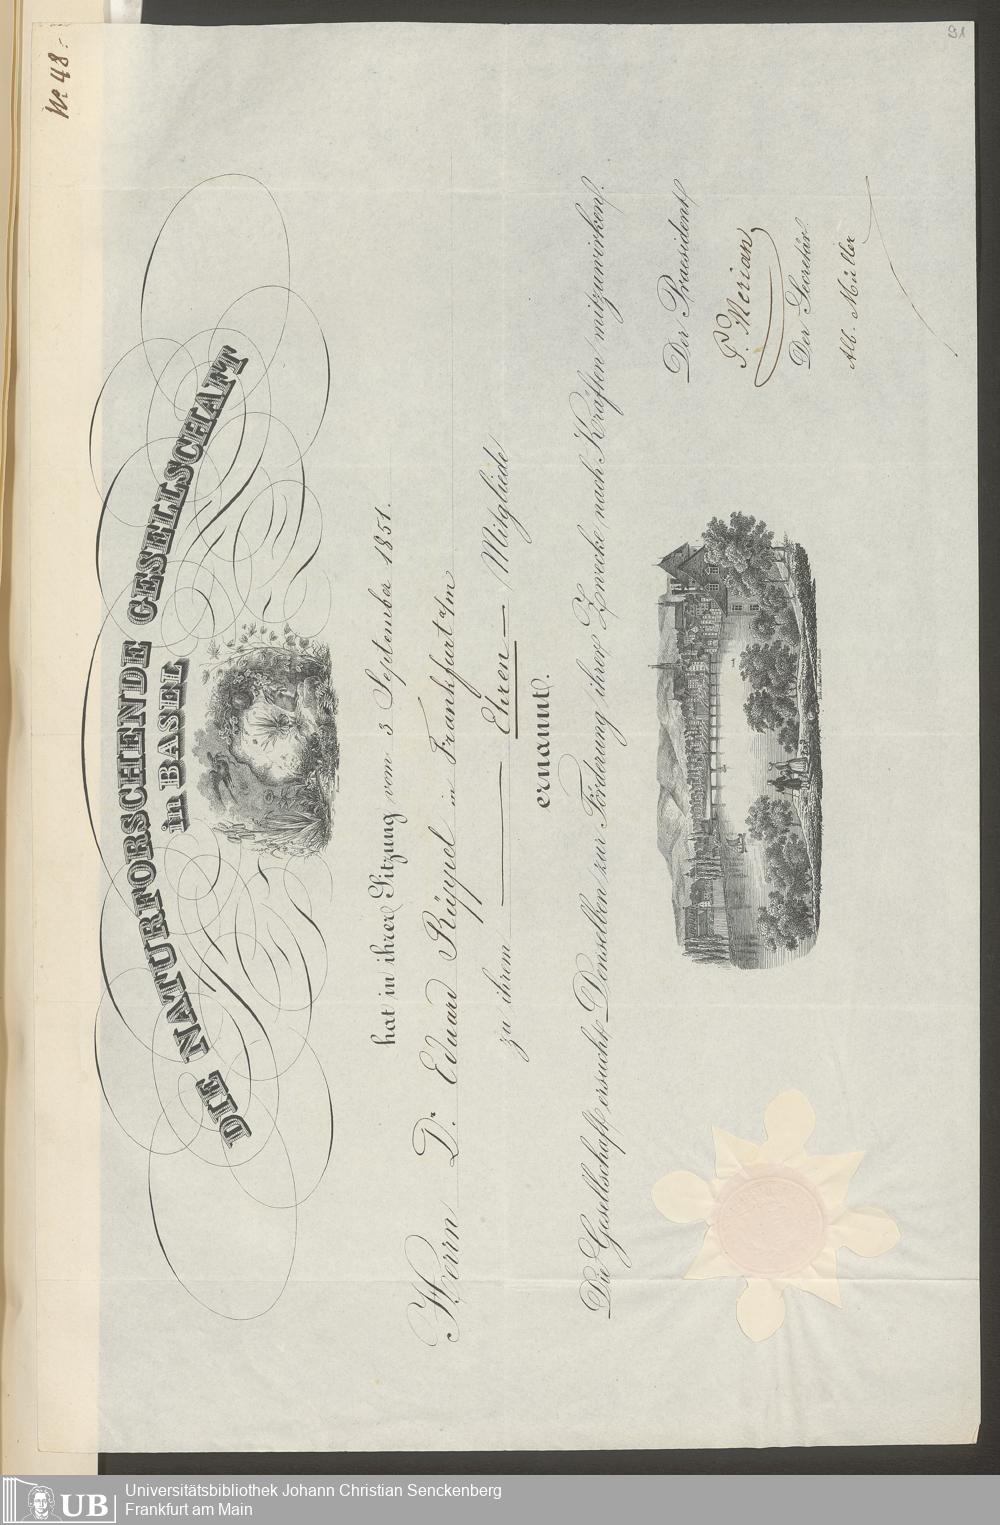 No 48.
91
DIE NATURFORSCHENDE GESELLSCHAFT
in BASEL
hat in ihrer Sitzung vom 3 September 1851.
Herrn Dr. Eduard Rüppel in Frankfurt a/m
zu ihrem Ehren Mitgliede
ernannt.
Die Gesellschaft ersucht Denselben zur Förderung ihrer Zwecke nach Kräften mitzuwirken.
Der Praesident
P. Merian
Der Secretär
Alb. Müller
UB
Universitätsbibliothek Johann Christian Senckenberg
Frankfurt am Main